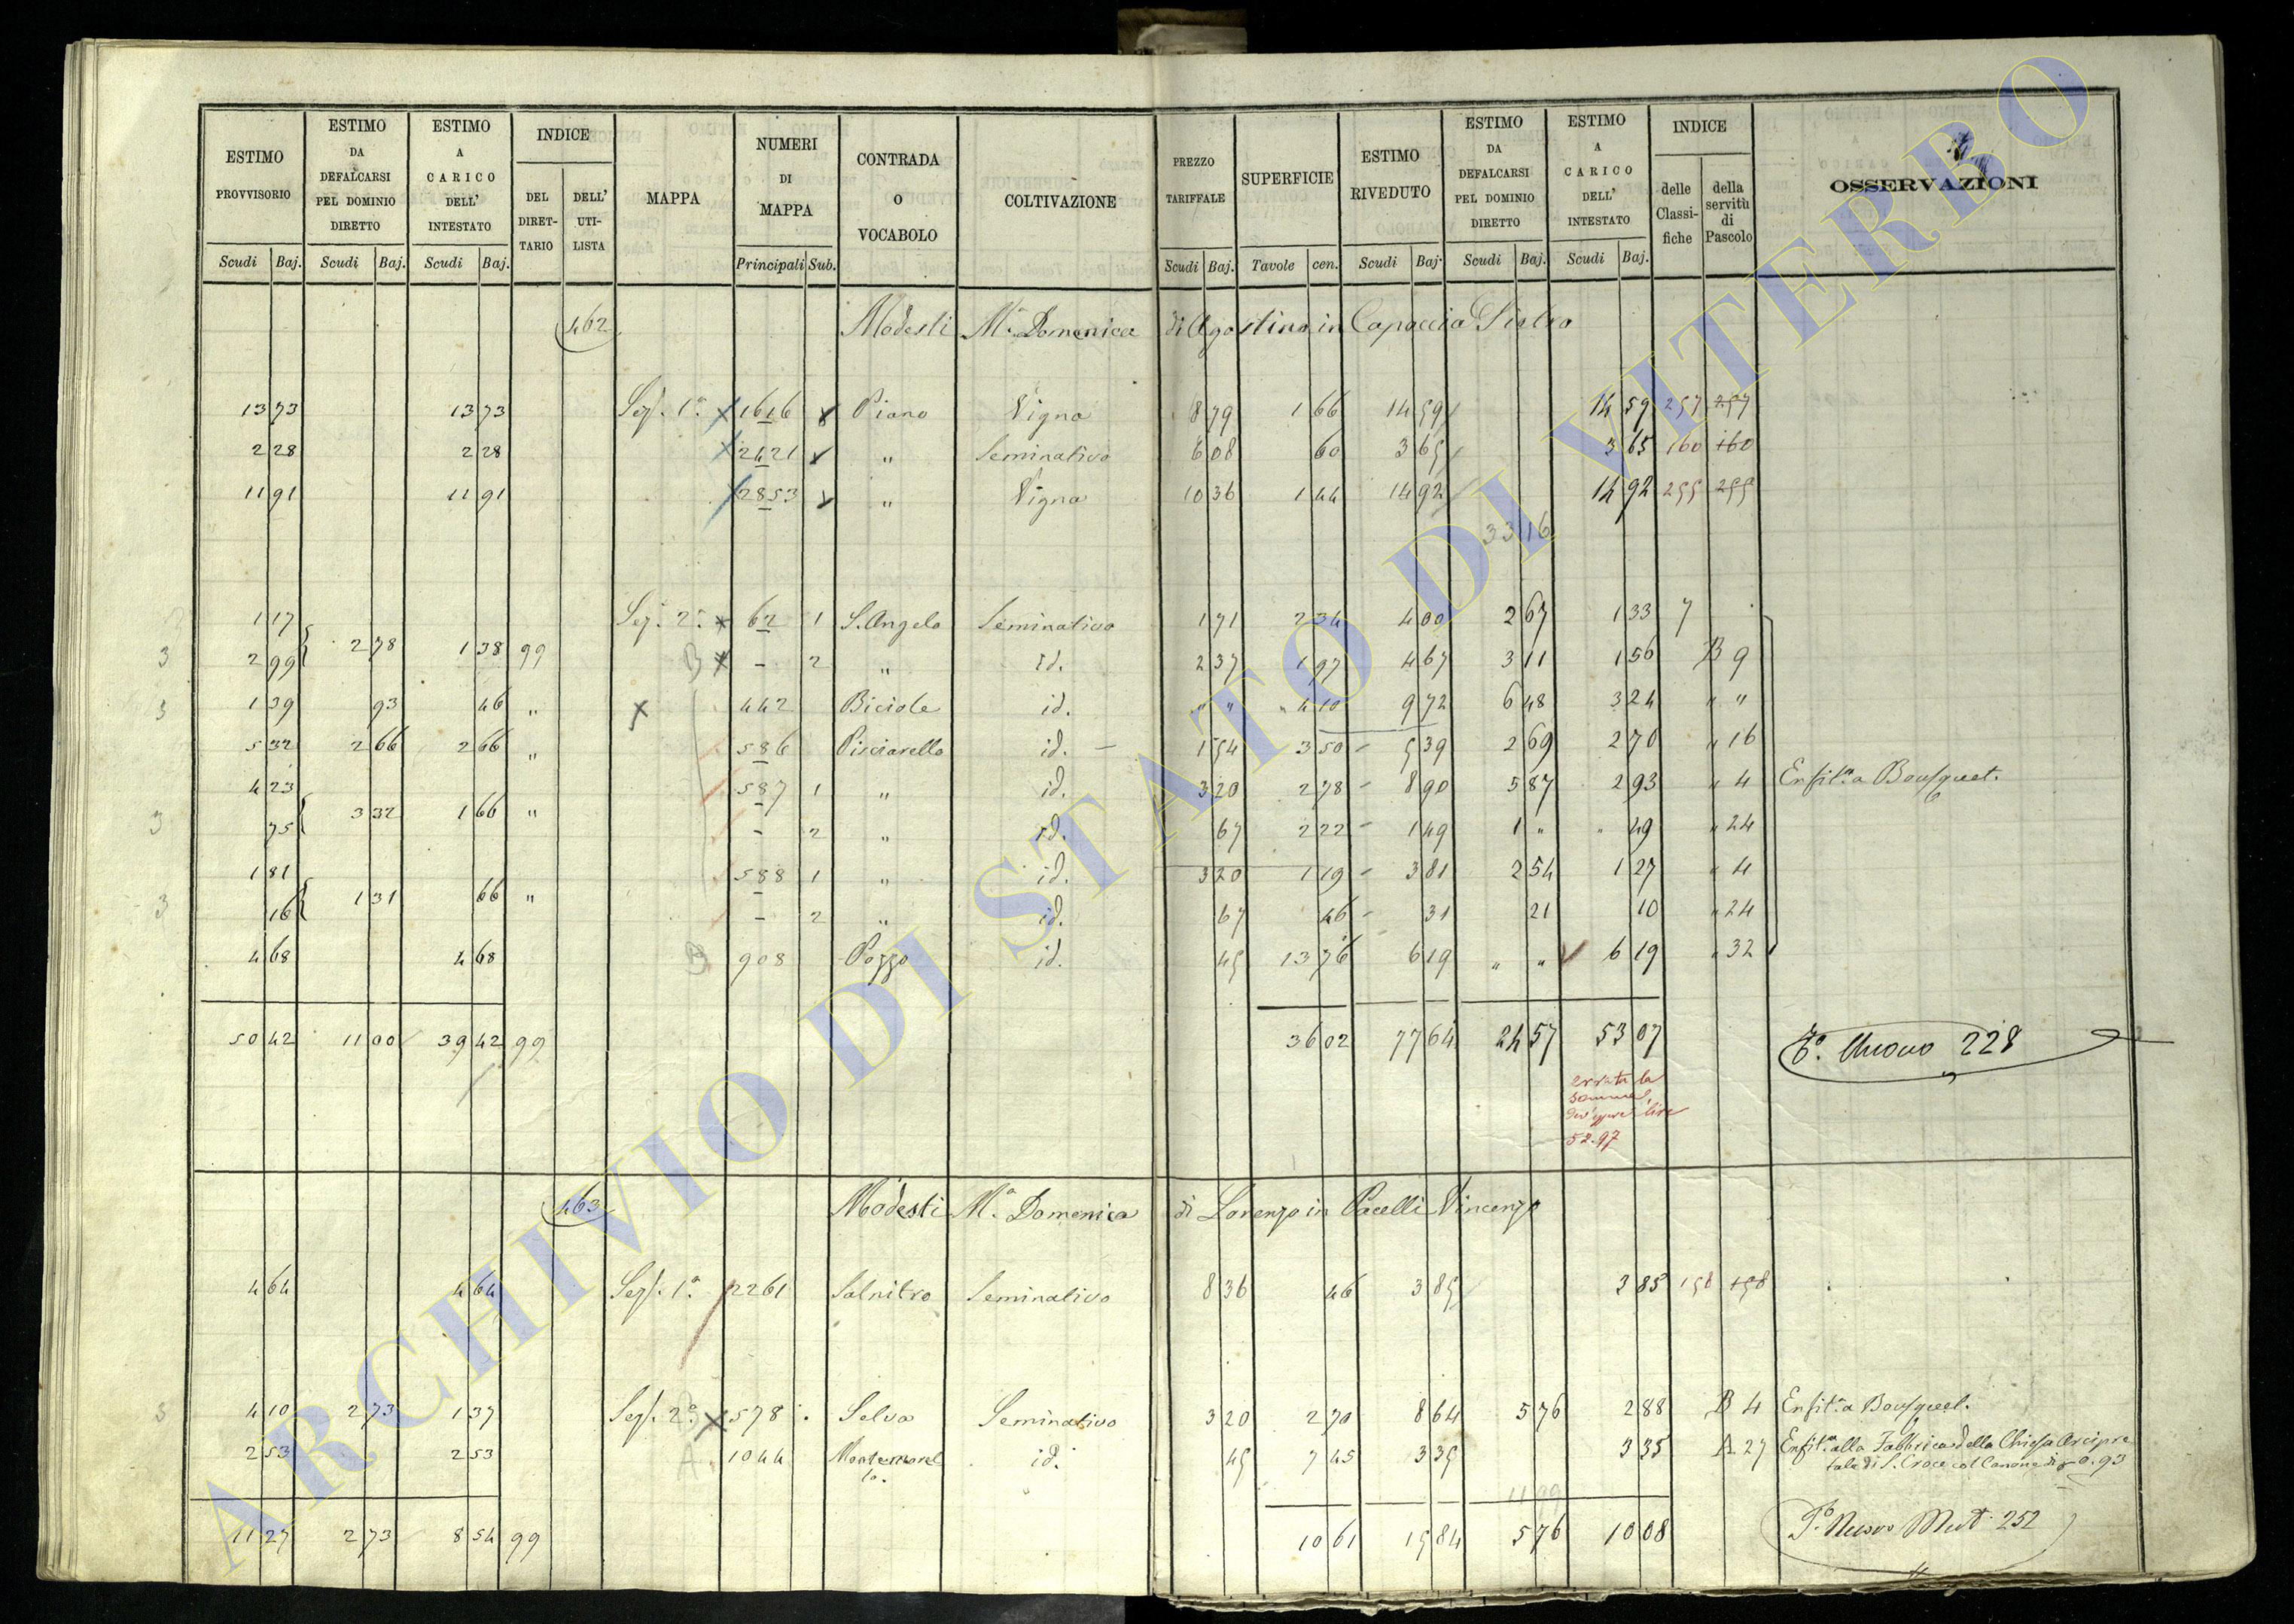 ESTIMO PROVVISORIO | ESTIMO DA DEFALCARSI PEL DOMINIO DIRETTO | ESTIMO A CARICO DELL' INTESTATO | INDICE | MAPPA | NUMERI DI MAPPA | CONTRADA O VOCABOLO | COLTIVAZIONE | PREZZO TARIFFALE | SUPERFICIE | ESTIMO RIVEDUTO | ESTIMO DA DEFALCARSI PEL DOMINIO DIRETTO | ESTIMO A CARICO DELL' INTESTATO | INDICE | OSSERVAZIONI
DEL DIRET-TARIO | DELL' UTI-LISTA | delle Classi-fiche | della servitù di Pascolo
Scudi Baj. | Scudi Baj. | Scudi Baj. | Principali Sub. | Scudi Baj. | Tavole cen. | Scudi Baj. | Scudi Baj. | Scudi Baj.
462 Modesti Mª Domenica di Agostino in Capaccia Pietro
13 73 | 13 73 | Sez. 1ª | 1616 | Piano | Vigna | 8 79 | 1 66 | 14 59 | 14 59 | 257 | 257
2 28 | 2 28 | 2421 | " | Seminativo | 6 08 | 60 | 3 65 | 3 65 | 160 | 160
11 91 | 11 91 | 2853 | " | Vigna | 10 36 | 1 44 | 14 92 | 14 92 | 255 | 255
33 16
1 17 | Sez. 2ª | 62 | 1 | S. Angelo | Seminativo | 1 71 | 2 34 | 4 00 | 2 67 | 1 33 | 7
3 | 2 99 | 2 78 | 1 38 | 99 | B | - | 2 | " | id. | 2 37 | 1 97 | 4 67 | 3 11 | 1 56 | B 9
3 | 1 39 | 93 | 46 | " | 442 | Biciole | id. | " " | 4 10 | 9 72 | 6 48 | 3 24 | " "
5 32 | 2 66 | 2 66 | " | 586 | Pisciarello | id. | 1 54 | 3 50 | 5 39 | 2 69 | 2 70 | " 16
4 23 | 587 | 1 | " | id. | 3 20 | 2 78 | 8 90 | 5 87 | 2 93 | " 4 | Enfit. a Bousquet.
3 | 75 | 3 32 | 1 66 | " | - | 2 | " | id. | 67 | 2 22 | 1 49 | 1 " | " 49 | " 24
1 81 | 588 | 1 | " | id. | 3 20 | 1 19 | 3 81 | 2 54 | 1 27 | " 4
3 | 16 | 1 31 | 66 | " | - | 2 | " | id. | 67 | 46 | 31 | 21 | 10 | " 24
4 68 | 4 68 | B | 908 | Pozzo | id. | 45 | 13 76 | 6 19 | " " | 6 19 | " 32
50 42 | 11 00 | 39 42 | 99 | 36 02 | 77 64 | 24 57 | 53 07 | Pº Nuovo 228
errata la
somma,
dev'essere lire
52.97
463 Modesti Mª Domenica di Lorenzo in Pacelli Vincenzo
4 64 | 4 64 | Sez. 1ª | 2261 | Salnitro | Seminativo | 8 36 | 46 | 3 85 | 3 85 | 158 | 158
3 | 4 10 | 2 73 | 1 37 | Sez. 2ª | 578 | Selva | Seminativo | 3 20 | 2 70 | 8 64 | 5 76 | 2 88 | B 4 | Enfit. a Bousquet.
2 53 | 2 53 | A | 1044 | Montemorello | id. | 45 | 7 45 | 3 35 | 3 35 | A 27 | Enfit. alla Fabbrica della Chiesa Arcipre
tale di S. Croce col Canone di 0.93
11 99
11 27 | 2 73 | 8 54 | 99 | 10 61 | 15 84 | 5 76 | 10 08 | Pº Nuovo Mut. 252
ARCHIVIO DI STATO DI VITERBO